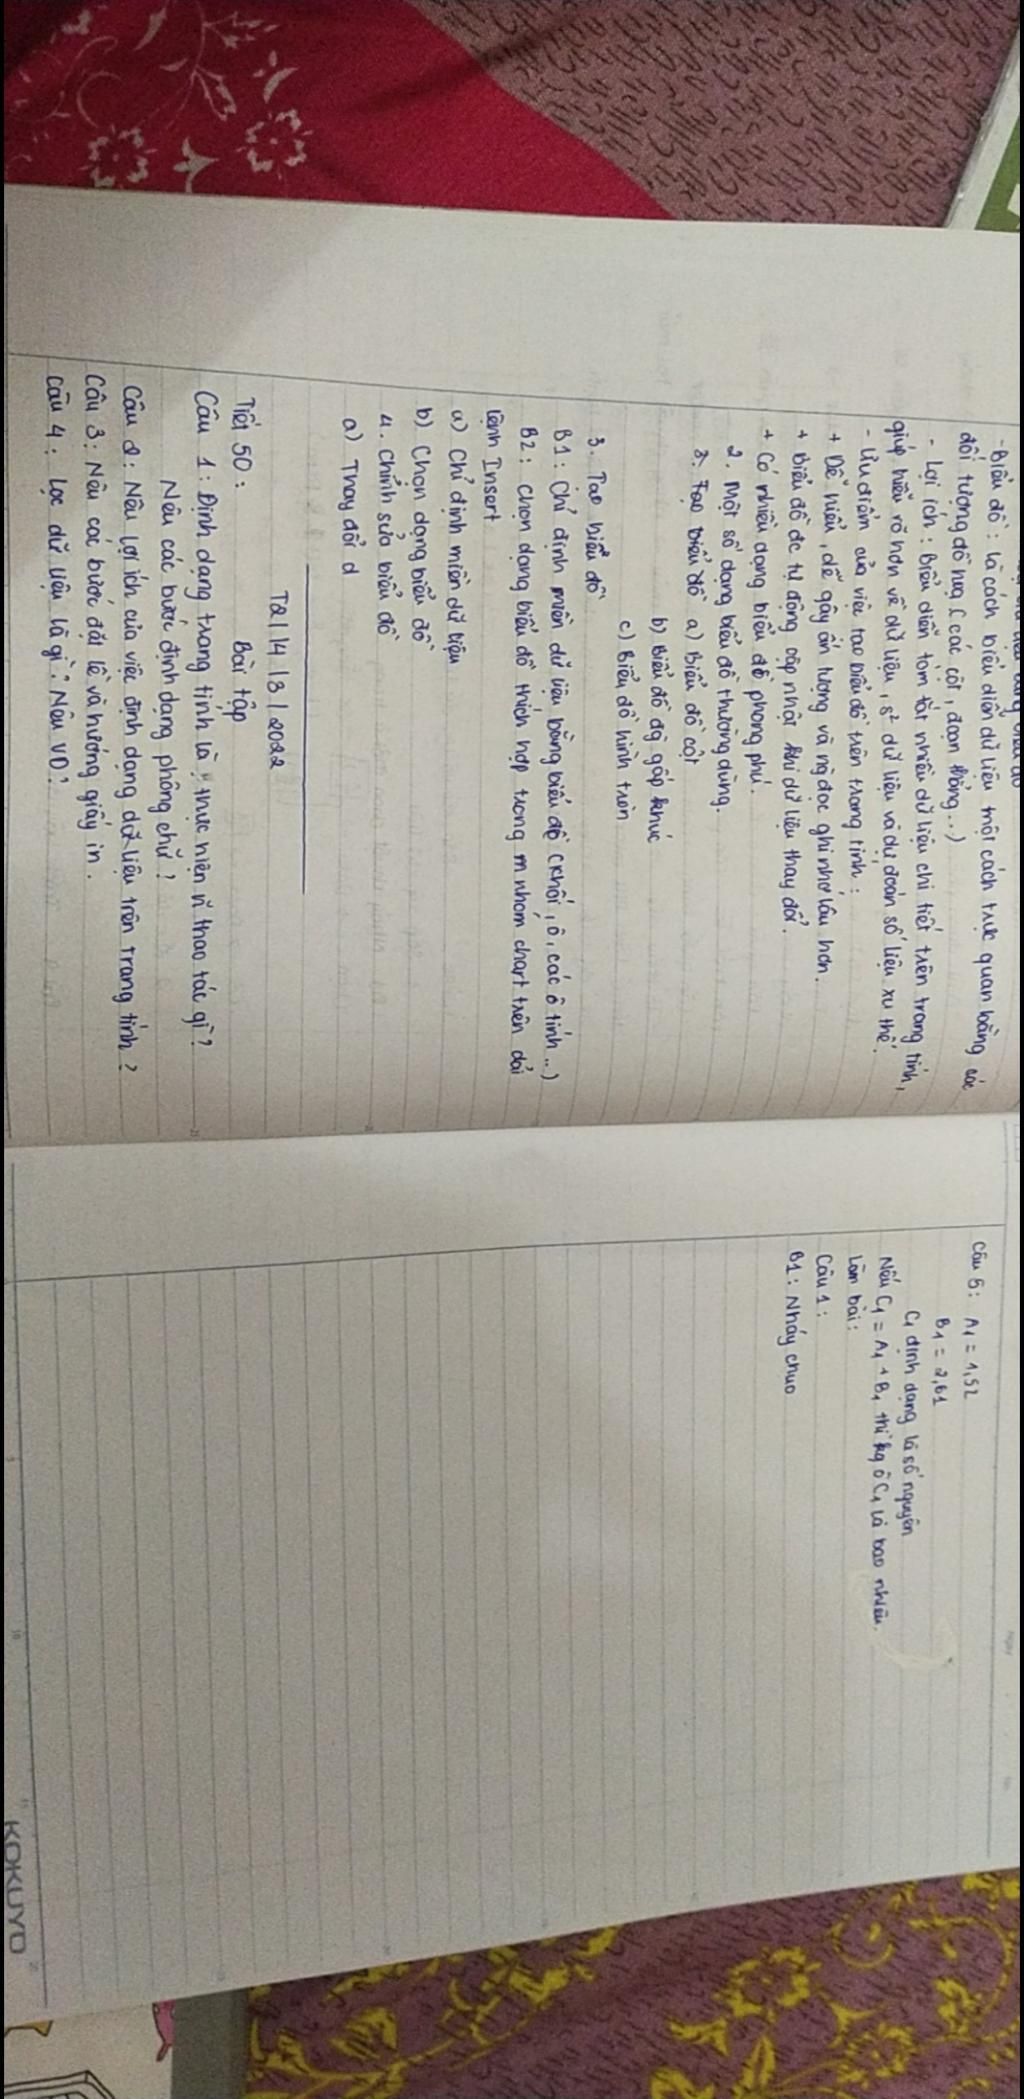 - Biểu đồ : là cách biểu diễn dữ liệu một cách trực quan bằng các
đối tượng đồ họa ( các cột, đoạn thẳng...)
- Lợi ích : Biểu diễn tóm tắt nhiều dữ liệu chi tiết trên trang tính,
giúp hiểu rõ hơn về dữ liệu, s² dữ liệu và dự đoán số liệu xu thế.
- Ưu điểm của việc tạo biểu đồ trên trang tính :
+ Dễ hiểu, dễ gây ấn tượng và ng đọc ghi nhớ lâu hơn.
+ Biểu đồ đc tự động cập nhật khi dữ liệu thay đổi.
+ Có nhiều dạng biểu đồ phong phú.
2. Một số dạng biểu đồ thường dùng.
3. Tạo biểu đồ a) Biểu đồ cột
b) Biểu đồ đg gấp khúc
c) Biểu đồ hình tròn
3. Tạo biểu đồ
B1 : Chỉ định miền dữ liệu bằng biểu đồ (khối, ô, các ô tính...)
B2 : Chọn dạng biểu đồ thích hợp trong m nhóm chart trên dải
lệnh Insert
a) Chỉ định miền dữ liệu
b) Chọn dạng biểu đồ
4. Chỉnh sửa biểu đồ
a) Thay đổi d
T2 / 14 / 3 / 2022
Tiết 50 : Bài tập
Câu 1 : Định dạng trong tính là thực hiện n~ thao tác gì ?
Nêu các bước định dạng phông chữ ?
Câu 2 : Nêu lợi ích của việc định dạng dữ liệu trên trang tính ?
Câu 3 : Nêu các bước đặt lề và hướng giấy in.
Câu 4 : Lọc dữ liệu là gì ? Nêu VD ?
Câu 5 : A1 = 1,52
B1 = 2,61
C1 định dạng là số nguyên
Nếu C1 = A1 + B1 thì kq ô C1 là bao nhiêu.
Làm bài :
Câu 1 :
B1 : Nháy chuo
KOKUYO